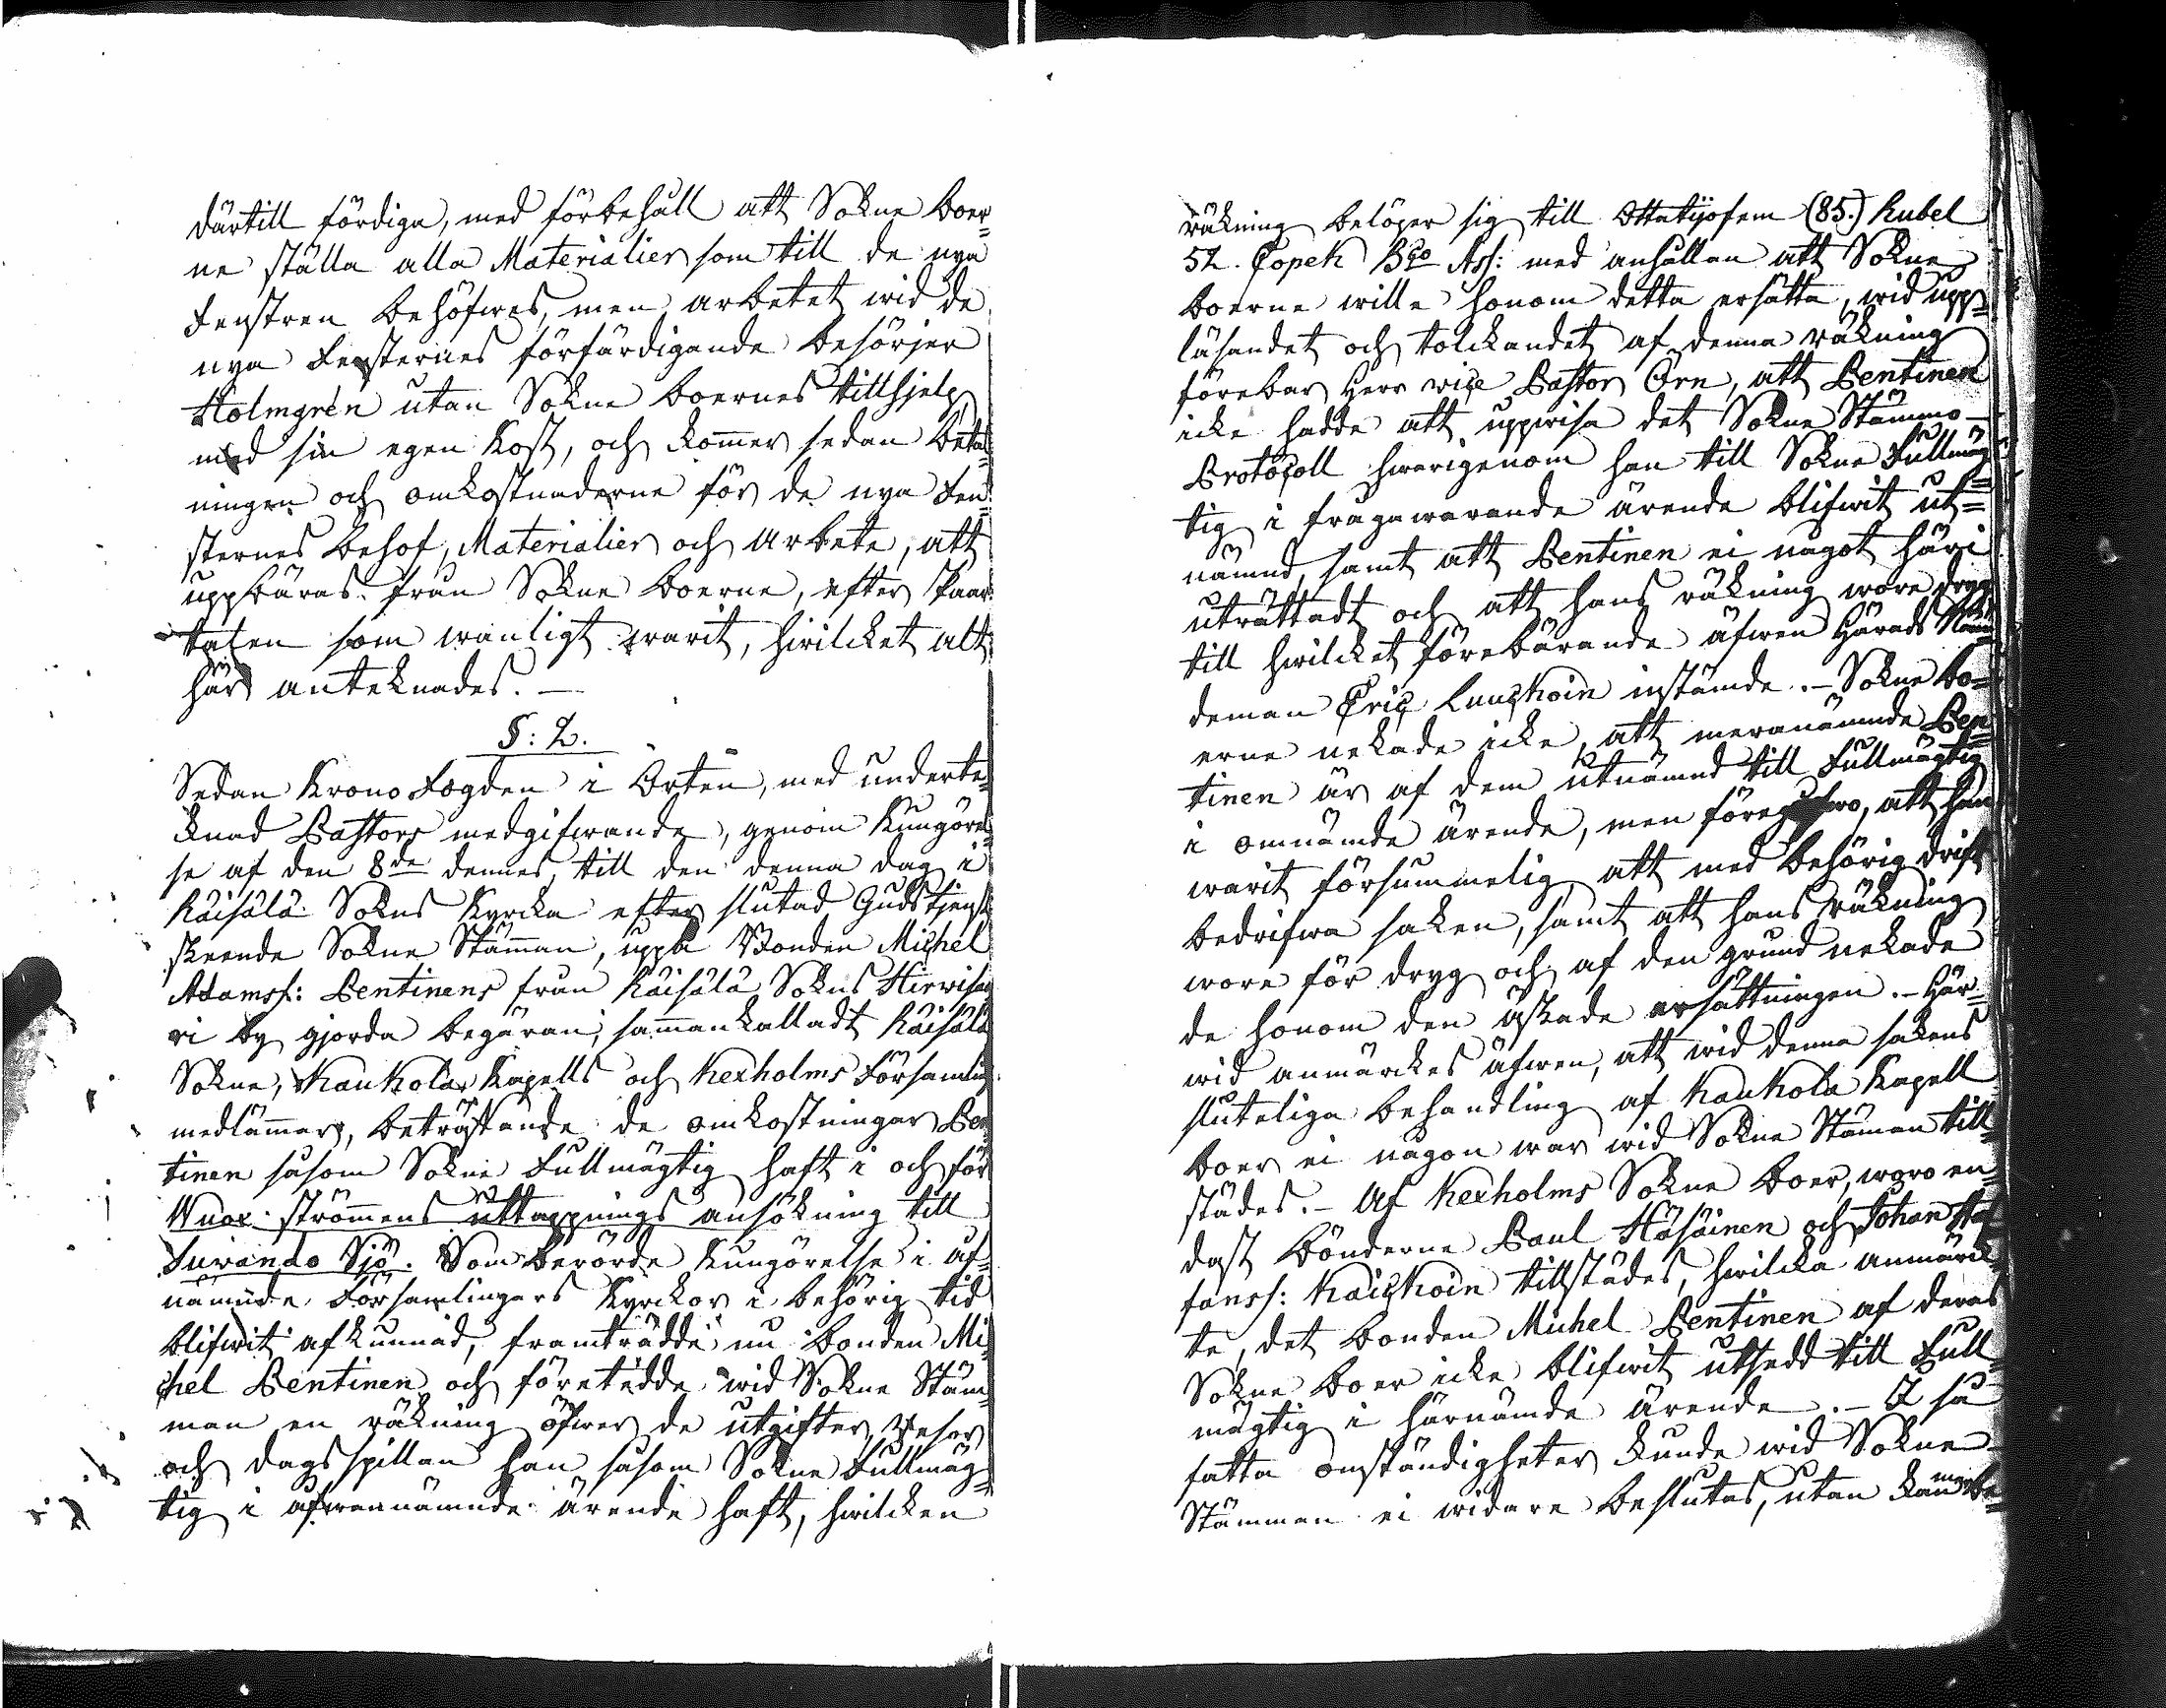 därtill färdiga, med förbehåll att Sokne boer¬
ne ställa alla Materialier som till de nya
Fenstren behöfwes, men arbetet wid de
nya Fensternes förfärdigande besörjer
Holmgrén utan Sokne boernes tillhjelp
med sin egen Kost, och kommer sedan betal¬
ningen och omkostnaderne för de nya Fen¬
sternes behof, Materialier och arbete, att
uppbäras från Sokne boerne, efter skaat
talen som wanligt warit, hwilcket alt
här anteknades. —
§: 2.
Sedan Krono Fogden i Orten, med underte¬
cknad Pastors medgifwande, genom Kungörel¬
se af den 8de dennes, till den denna dag i
Räisälä Sokns Kyrcka efter slutad Gudstjenst
skeende Sokne Stämman, uppå Bonden Michel
Adamss: Pentinens från Räisälä Sokns Hirvisaa
ri by gjorda begäran, sammankalladt Räisälä
Sokne, Kaukola Kapells och Kexholms Församling
medlämmar, beträffande de omkostningar Pen¬
tinen såsom Sokne Fullmägtig haft i och för
Wuox-strömmens uttappnings ansökning till
Suwando Sjö. Som berörde Kungörelse i of¬
nämnde Församlingars Kyrckor i behörig tid
blifwit afkunnad, framträdde nu bonden Mi¬
chel Pentinen och företedde wid Sokne Stäm¬
man en räkning öfwer de utgifter, Resor
och dagsspillan han såsom Sokne Fullmäg¬
tig i ofwannämnde ärende haft, hwilcken
räkning belöper sig till Ottatijofem (85.) Rubel
52. Copek Bco Ass: med anhållan att Sokne
boerne wille honom detta ersätta, wid upp¬
läsandet och tolckandet af denna räkning
förebar Herr vice Pastor Örn, att Pentinen
icke hadde att uppwisa det Sokne Stämmo—
Protocoll hwarigenom han till Sokne Fullmäg
tig i frågawarande ärende blifwit ut¬
nämnd, samt att Pentinen ei något häri
uträttadt och att hans räkning wore dryg
till hwilcket förebärande äfwen Härads Näm
deman Eric Launkoin instämde. — Sokne bo¬
erne nekade icke, att meranämnde Pen
tinen är af dem utnämnd till Fullmägtig
i omnämde ärende, men föregåfwo, att han
warit försummelig att med behörig drift
bedrifwa saken, samt att hans räkning
wore för dryg och af den grund nekade
de honom den äskade ersättningen. — Här¬
wid anmärckes äfwen, att wid denna sakens
sluteliga behandling af Kaukola Kapell
boer ei någon war wid Sokne Stämman till
städes. — Af Kexholms Sokne boer, woro en¬
dast bönderne Paul Häsäinen och Johan Sta
fanss: Kaickoin tillstädes, hwilcka anmärck
te, det bonden Michel Pentinen af deras
Sokne boer icke blifwit utsedd till Full¬
mägtig i härnämde ärende. — I så
fatta omständigheter kunde wid Sokne
Stämman ei widare beslutas, utan kommer be¬